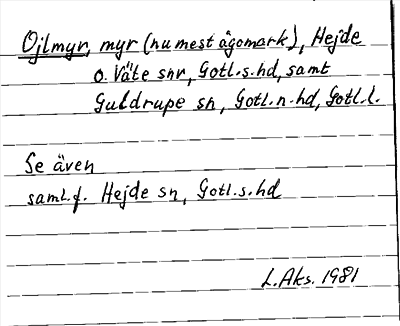 Ojlmyr, myr (nu mest ågomark), Hejde
o. Väte snr, Gotl.s.hd, samt
Guldrupe sn, Gotl.n.hd, Gotl.l.
Se även
saml.f. Hejde sn, Gotl.s.hd
L.Aks. 1981